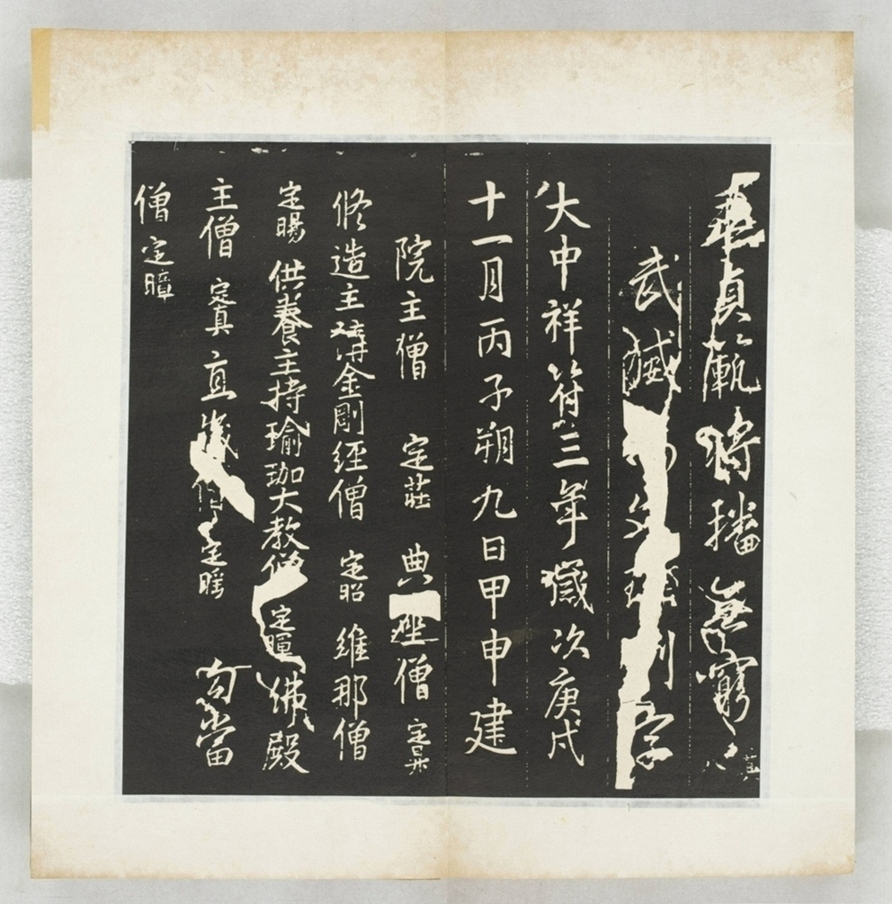 垂貞琬將播無窮 其八
武威 文 刻字
大中祥符三年歲次庚戌
十一月丙子朔九日甲申建
院主僧 定莊 典座僧 定昇
修造主講金剛經僧 定昭 維那僧
定暘 供養主持瑜珈大教僧 定暉 佛殿
主僧 定真 直歲僧 定暖 勾當
僧 定暲